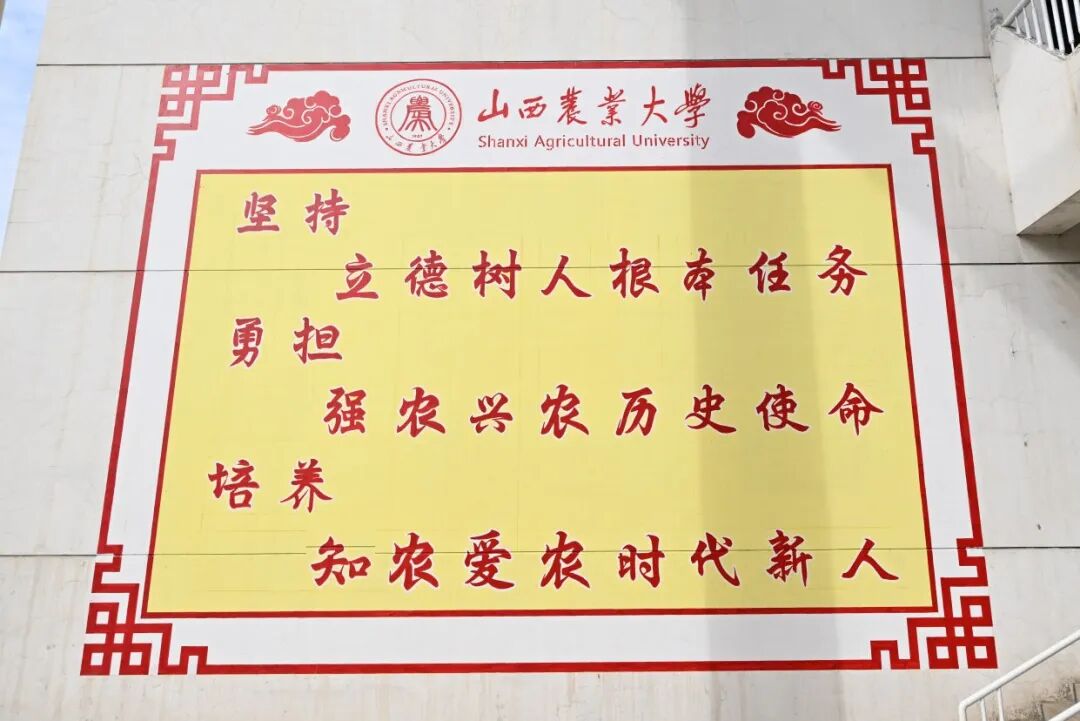 SHANXI AGRICULTURAL UNIVERSITY
1907
山西農業大學
山西農業大學
Shanxi Agricultural University
坚持
立德树人根本任务
勇担
强农兴农历史使命
培养
知农爱农时代新人